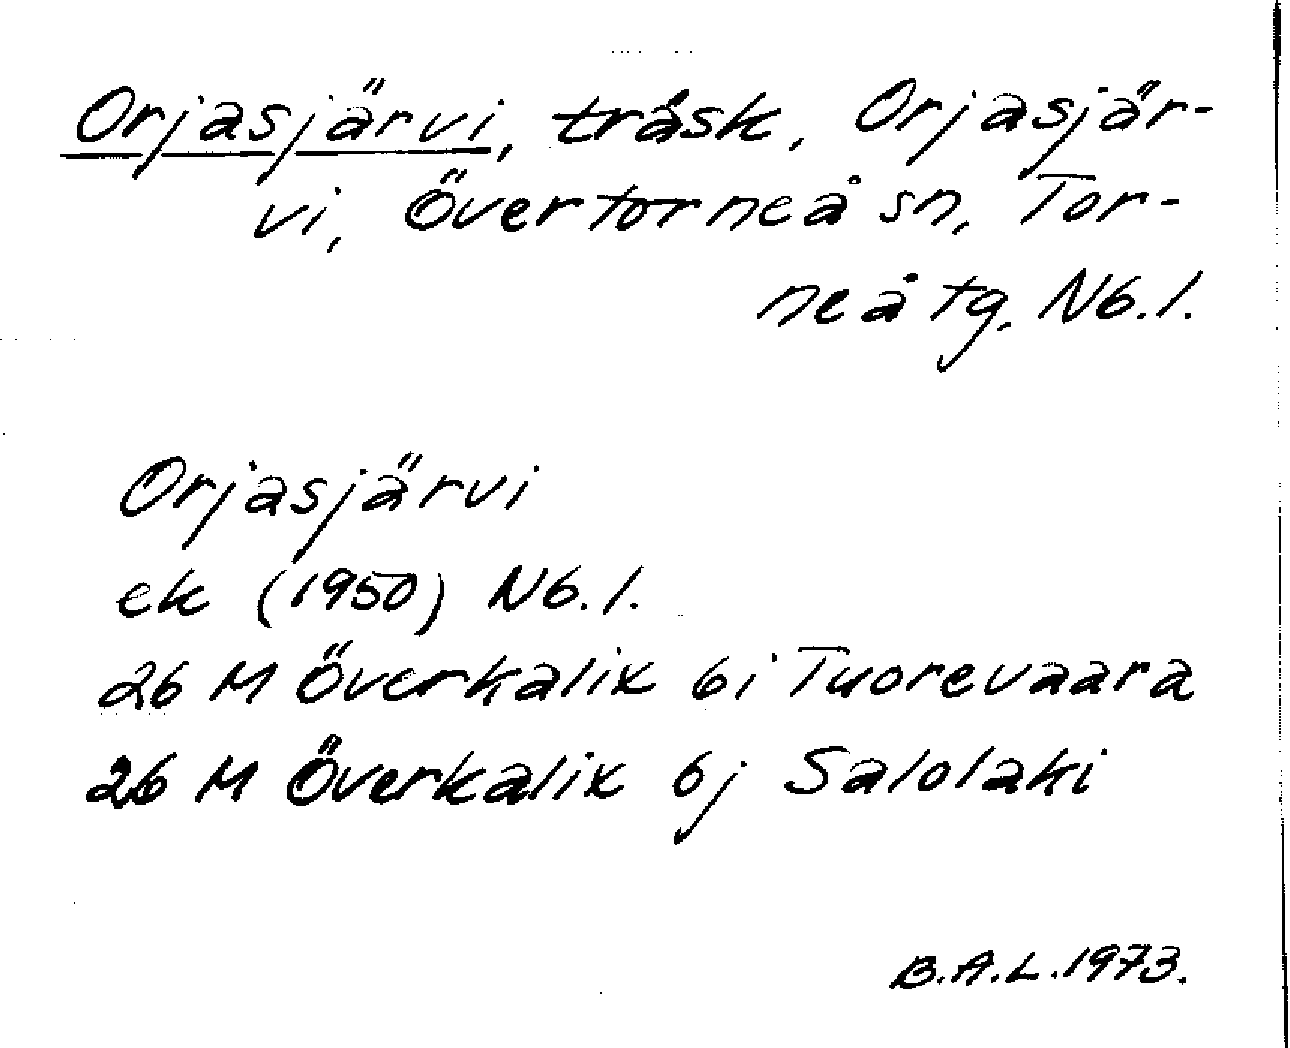 Orjasjärvi, träsk, Orjasjär-
vi, Övertorneå sn, Tor-
neå tg. Nb. l.
Orjasjärvi
ek (1950) Nb. l.
26 M Överkalix 6i Tuorevaara
26 M Överkalix 6j Salolaki
B.A.L. 1973.